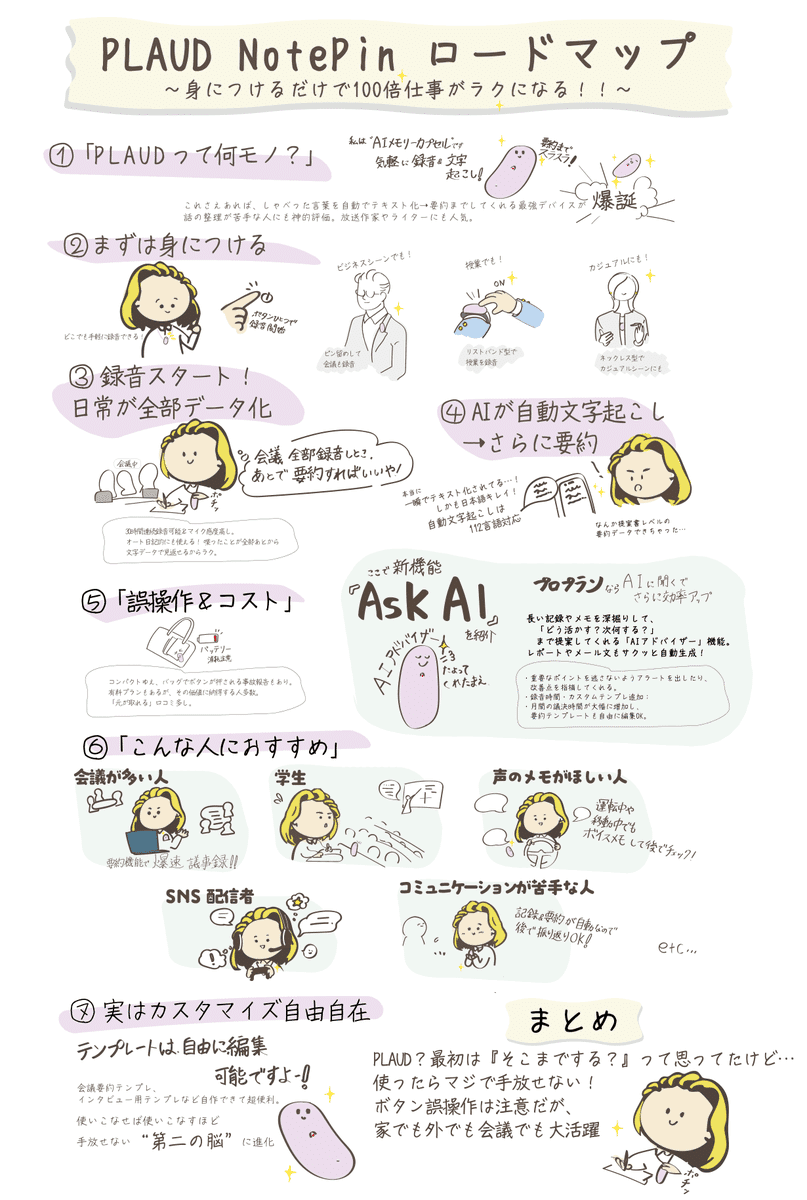 PLAUD NotePin ロードマップ
～身につけるだけで100倍仕事がラクになる！！～
①「PLAUDって何モノ？」
私は"AIメモリーカプセル"です
気軽に録音&文字
起こし！
要約まで
スラスラ！
爆誕
これさえあれば、しゃべった言葉を自動でテキスト化→要約までしてくれる最強デバイスが
話の整理が苦手な人にも神的評価。放送作家やライターにも人気。
②まずは身につける
どこでも手軽に録音できる！
ボタンひとつで
録音開始
ビジネスシーンでも！
ピン留めして
会議も録音
授業でも！
ON
リストバンド型で
授業を録音
カジュアルにも！
ネックレス型で
カジュアルシーンにも
③録音スタート！
日常が全部データ化
会議中
ポチッ
会議全部録音しとこ、
あとで要約すればいいや！
30時間連続録音可能&マイク感度高し。
オート日記的にも使える！喋ったことが全部あとから
文字データで見返せるからラク。
④AIが自動文字起こし
→さらに要約
本当に
一瞬でテキスト化されてる…！
しかも日本語キレイ！
自動文字起こしは
112言語対応
なんか提案書レベルの
要約データできちゃった…
⑤「誤操作&コスト」
バッテリー
消耗注意
コンパクトゆえ、バッグでボタンが押される事故報告もあり。
有料プランもあるが、その価値に納得する人多数。
「元が取れる」口コミ多し。
ここで新機能
『Ask AI』
を紹介
AIアドバイザー
たよって
くれたまえ
プロプランならAIに聞くで
さらに効率アップ
長い記録やメモを深掘りして、
「どう活かす？次何する？」
まで提案してくれる「AIアドバイザー」機能。
レポートやメール文もサクッと自動生成！
・重要なポイントを逃さないようアラートを出したり、
改善点を指摘してくれる。
・録音時間・カスタムテンプレ追加：
・月間の議決時間が大幅に増加し、
要約テンプレートも自由に編集OK。
⑥「こんな人におすすめ」
会議が多い人
要約機能で爆速議事録！！
学生
声のメモがほしい人
運転中や
移動中でも
ボイスメモして後でチェック！
SNS配信者
コミュニケーションが苦手な人
記録&要約が自動なので
後で振り返りOK！
etc...
⑦実はカスタマイズ自由自在
テンプレートは自由に編集
可能ですよー！
会議要約テンプレ、
インタビュー用テンプレなど自作できて超便利。
使いこなせば使いこなすほど
手放せない "第二の脳" に進化
まとめ
PLAUD？最初は『そこまでする？』って思ってたけど…
使ったらマジで手放せない！
ボタン誤操作は注意だが、
家でも外でも会議でも大活躍
ポチッ